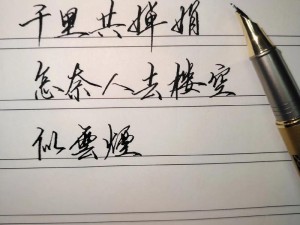 千里共婵娟
怎奈人去楼空
似雲煙